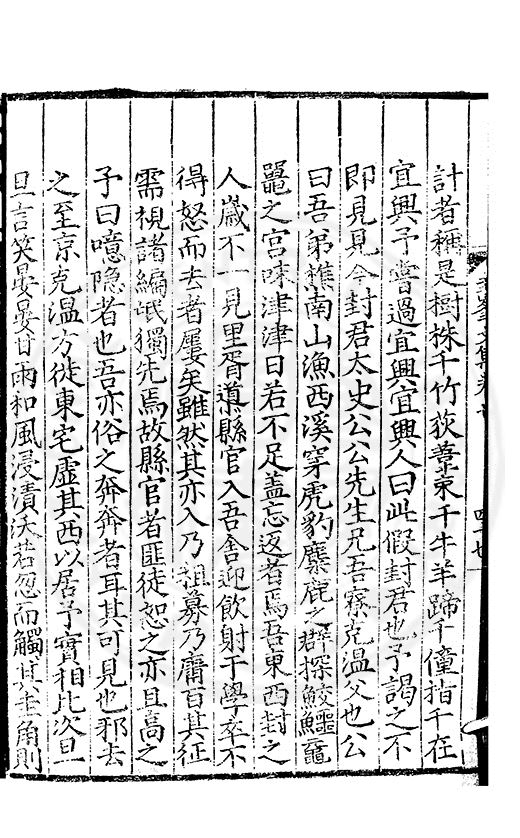 計者稱是樹株千竹荻葦束千牛羊蹄千僮指千在
宜興予嘗過宜興宜興人曰此假封君也予謁之不
即見見今封君太史公公先生兄吾寮克溫父也公
曰吾弟樵南山漁西溪穿虎豹麋鹿之群探鮫鱷黿
鼉之宮味津津日若不足蓋忘返者焉吾東西封之
人歲不一見里胥導縣官入吾舍迎飲射于學卒不
得怒而去者屢矣雖然其亦入乃租募乃庸百其征
需視諸編氓獨先焉故縣官者匪徒恕之亦且高之
予曰噫隐者也吾亦俗之奔奔者耳其可見也邪去
之至京克溫方徙東宅虛其西以居予實相比次旦
旦言笑晏晏甘雨和風浸漬沃若忽而觸其圭角則